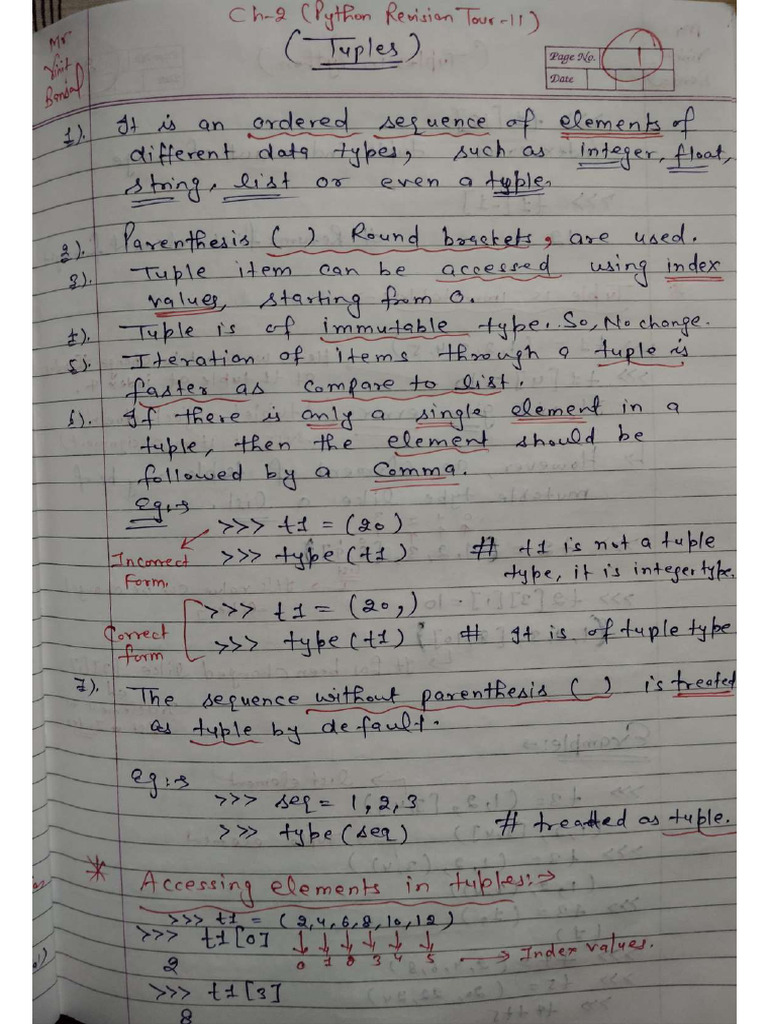 Ch-2 (Python Revision Tour-11)
Mr
Vinit
Bansal
(Tuples)
Page No. 1
Date
1). It is an ordered sequence of elements of
different data types, such as integer, float,
string, list or even a typle.
2). Parenthesis ( ) Round brackets, are used.
3). Tuple item can be accessed using index
values, starting from 0.
4). Tuple is of immutable type. So, No change.
5). Iteration of items through a tuple is
faster as compare to list.
6). If there is only a single element in a
tuple, then the element should be
followed by a Comma.
eg:→
>>> t1 = (20)
Incorrect Form. >>> type (t1) # t1 is not a tuple
type, it is integer type.
>>> t1 = (20,)
Correct form >>> type (t1) # It is of tuple type
7). The sequence without parenthesis ( ) is treated
as tuple by default.
eg:→
>>> seq = 1, 2, 3
>>> type (seq) # treated as tuple.
* Accessing elements in tuples:→
>>> t1 = (2,4,6,8,10,12)
>>> t1[0] ↓ ↓ ↓ ↓ ↓ ↓
0 1 2 3 4 5 → Index values.
2
>>> t1[3]
8